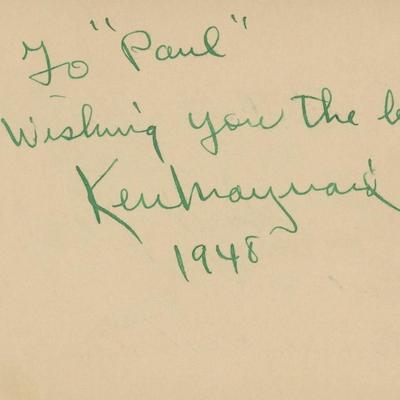 To "Paul"
Wishing you the b
Ken Maynard
1948